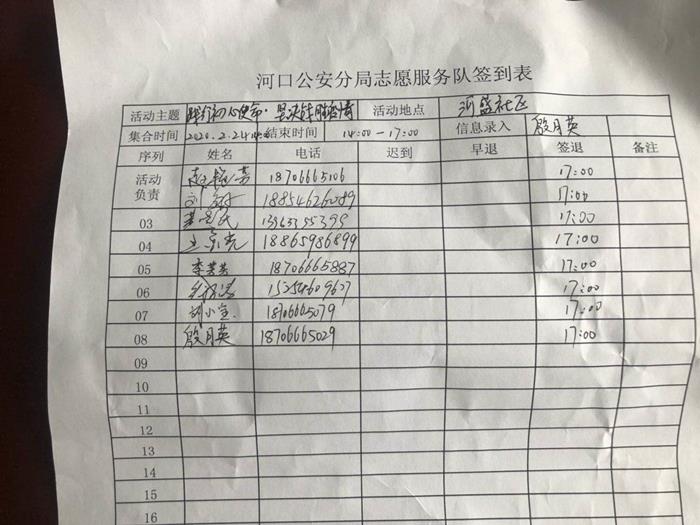 河口公安分局志愿服务队签到表
活动主题 践行初心使命·坚决铁胜疫情 活动地点 河盛社区
集合时间 2020.2.24 结束时间 14:00-17:00 信息录入 殷月英
序列 姓名 电话 迟到 早退 签退 备注
活动负责 18706665106 17:00
18854626089 17:00
03 17:00
04 王景光 18865986899 17:00
05 李芳芳 18706665887 17:00
06 17:00
07 胡小宝 18706665079 17:00
08 殷月英 18706665029 17:00
09
10
11
12
13
14
15
16